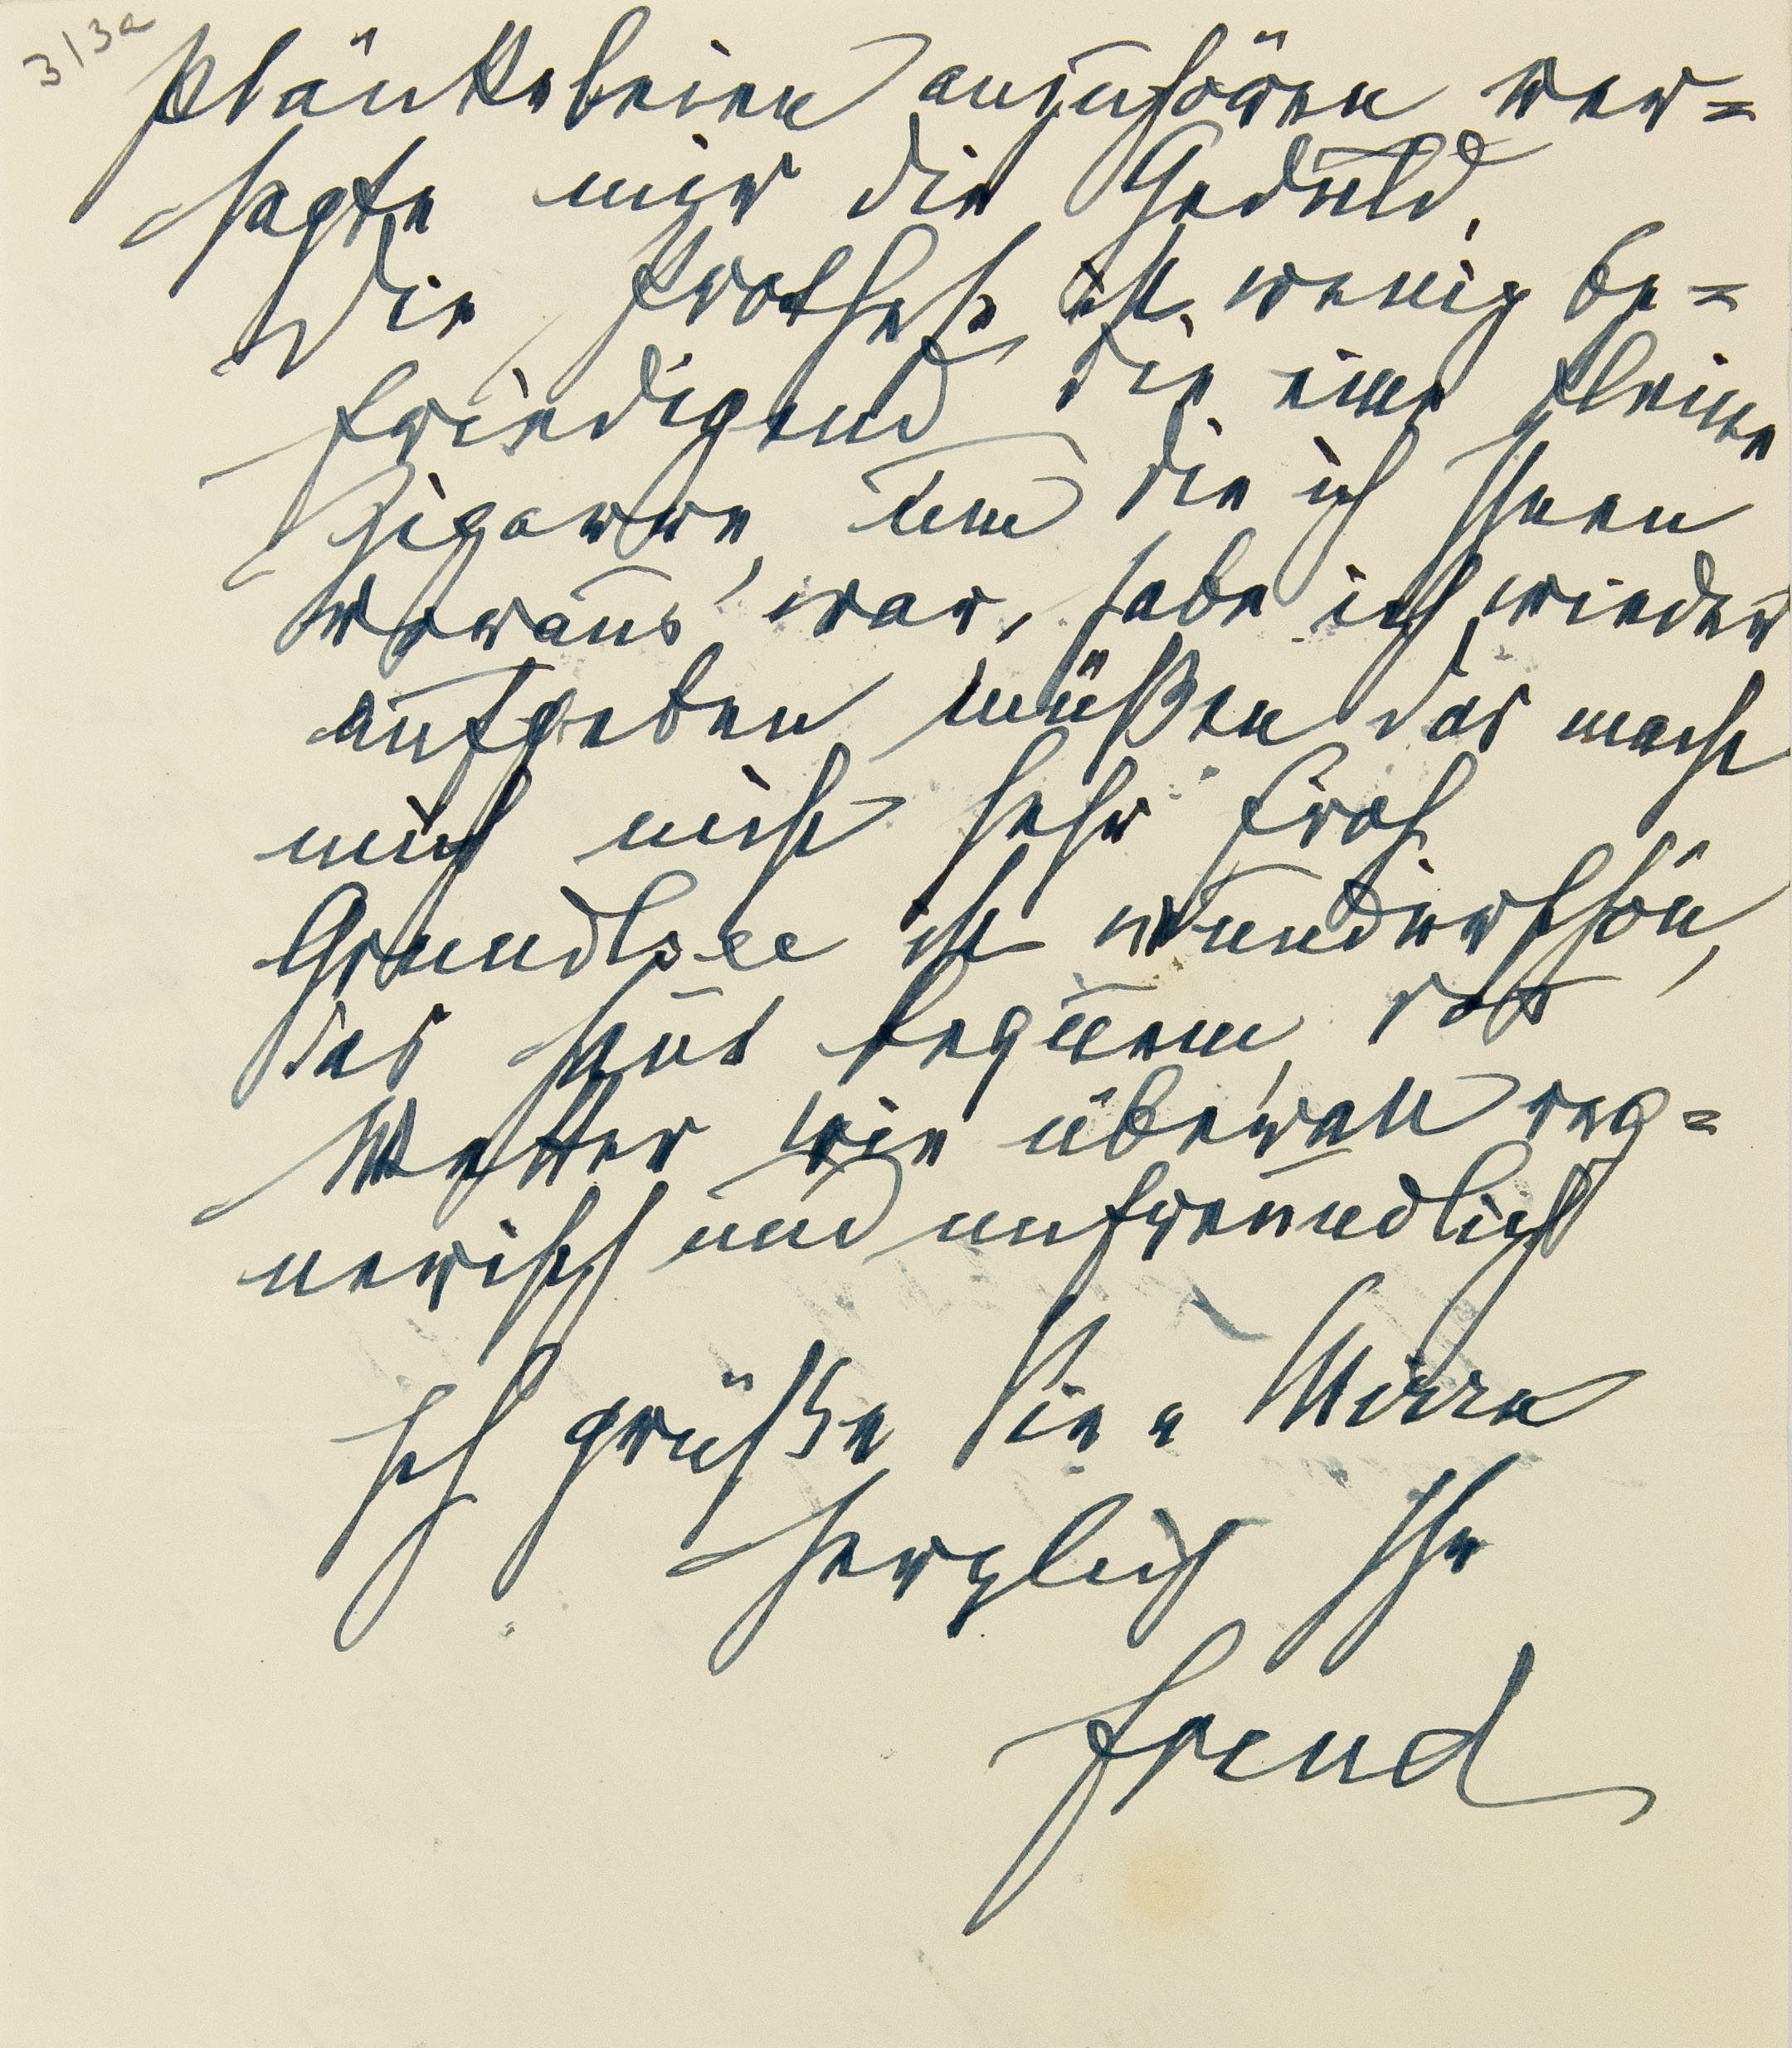 3/3a
Plänkeleien anzuhören ver=
sagte mir die Geduld.
Die Prothese ist wenig be=
friedigend die eine kleine
Zigarre, um die ich Ihnen
voraus war, habe ich wieder
aufgeben müßen das macht
mich nicht sehr froh
Grundlsee ist wunderschön,
das Haus bequem, das
Wetter wie überall reg=
nerisch und unfreundlich
Ich grüße Sie u Mirra
herzlich Ihr
Freud